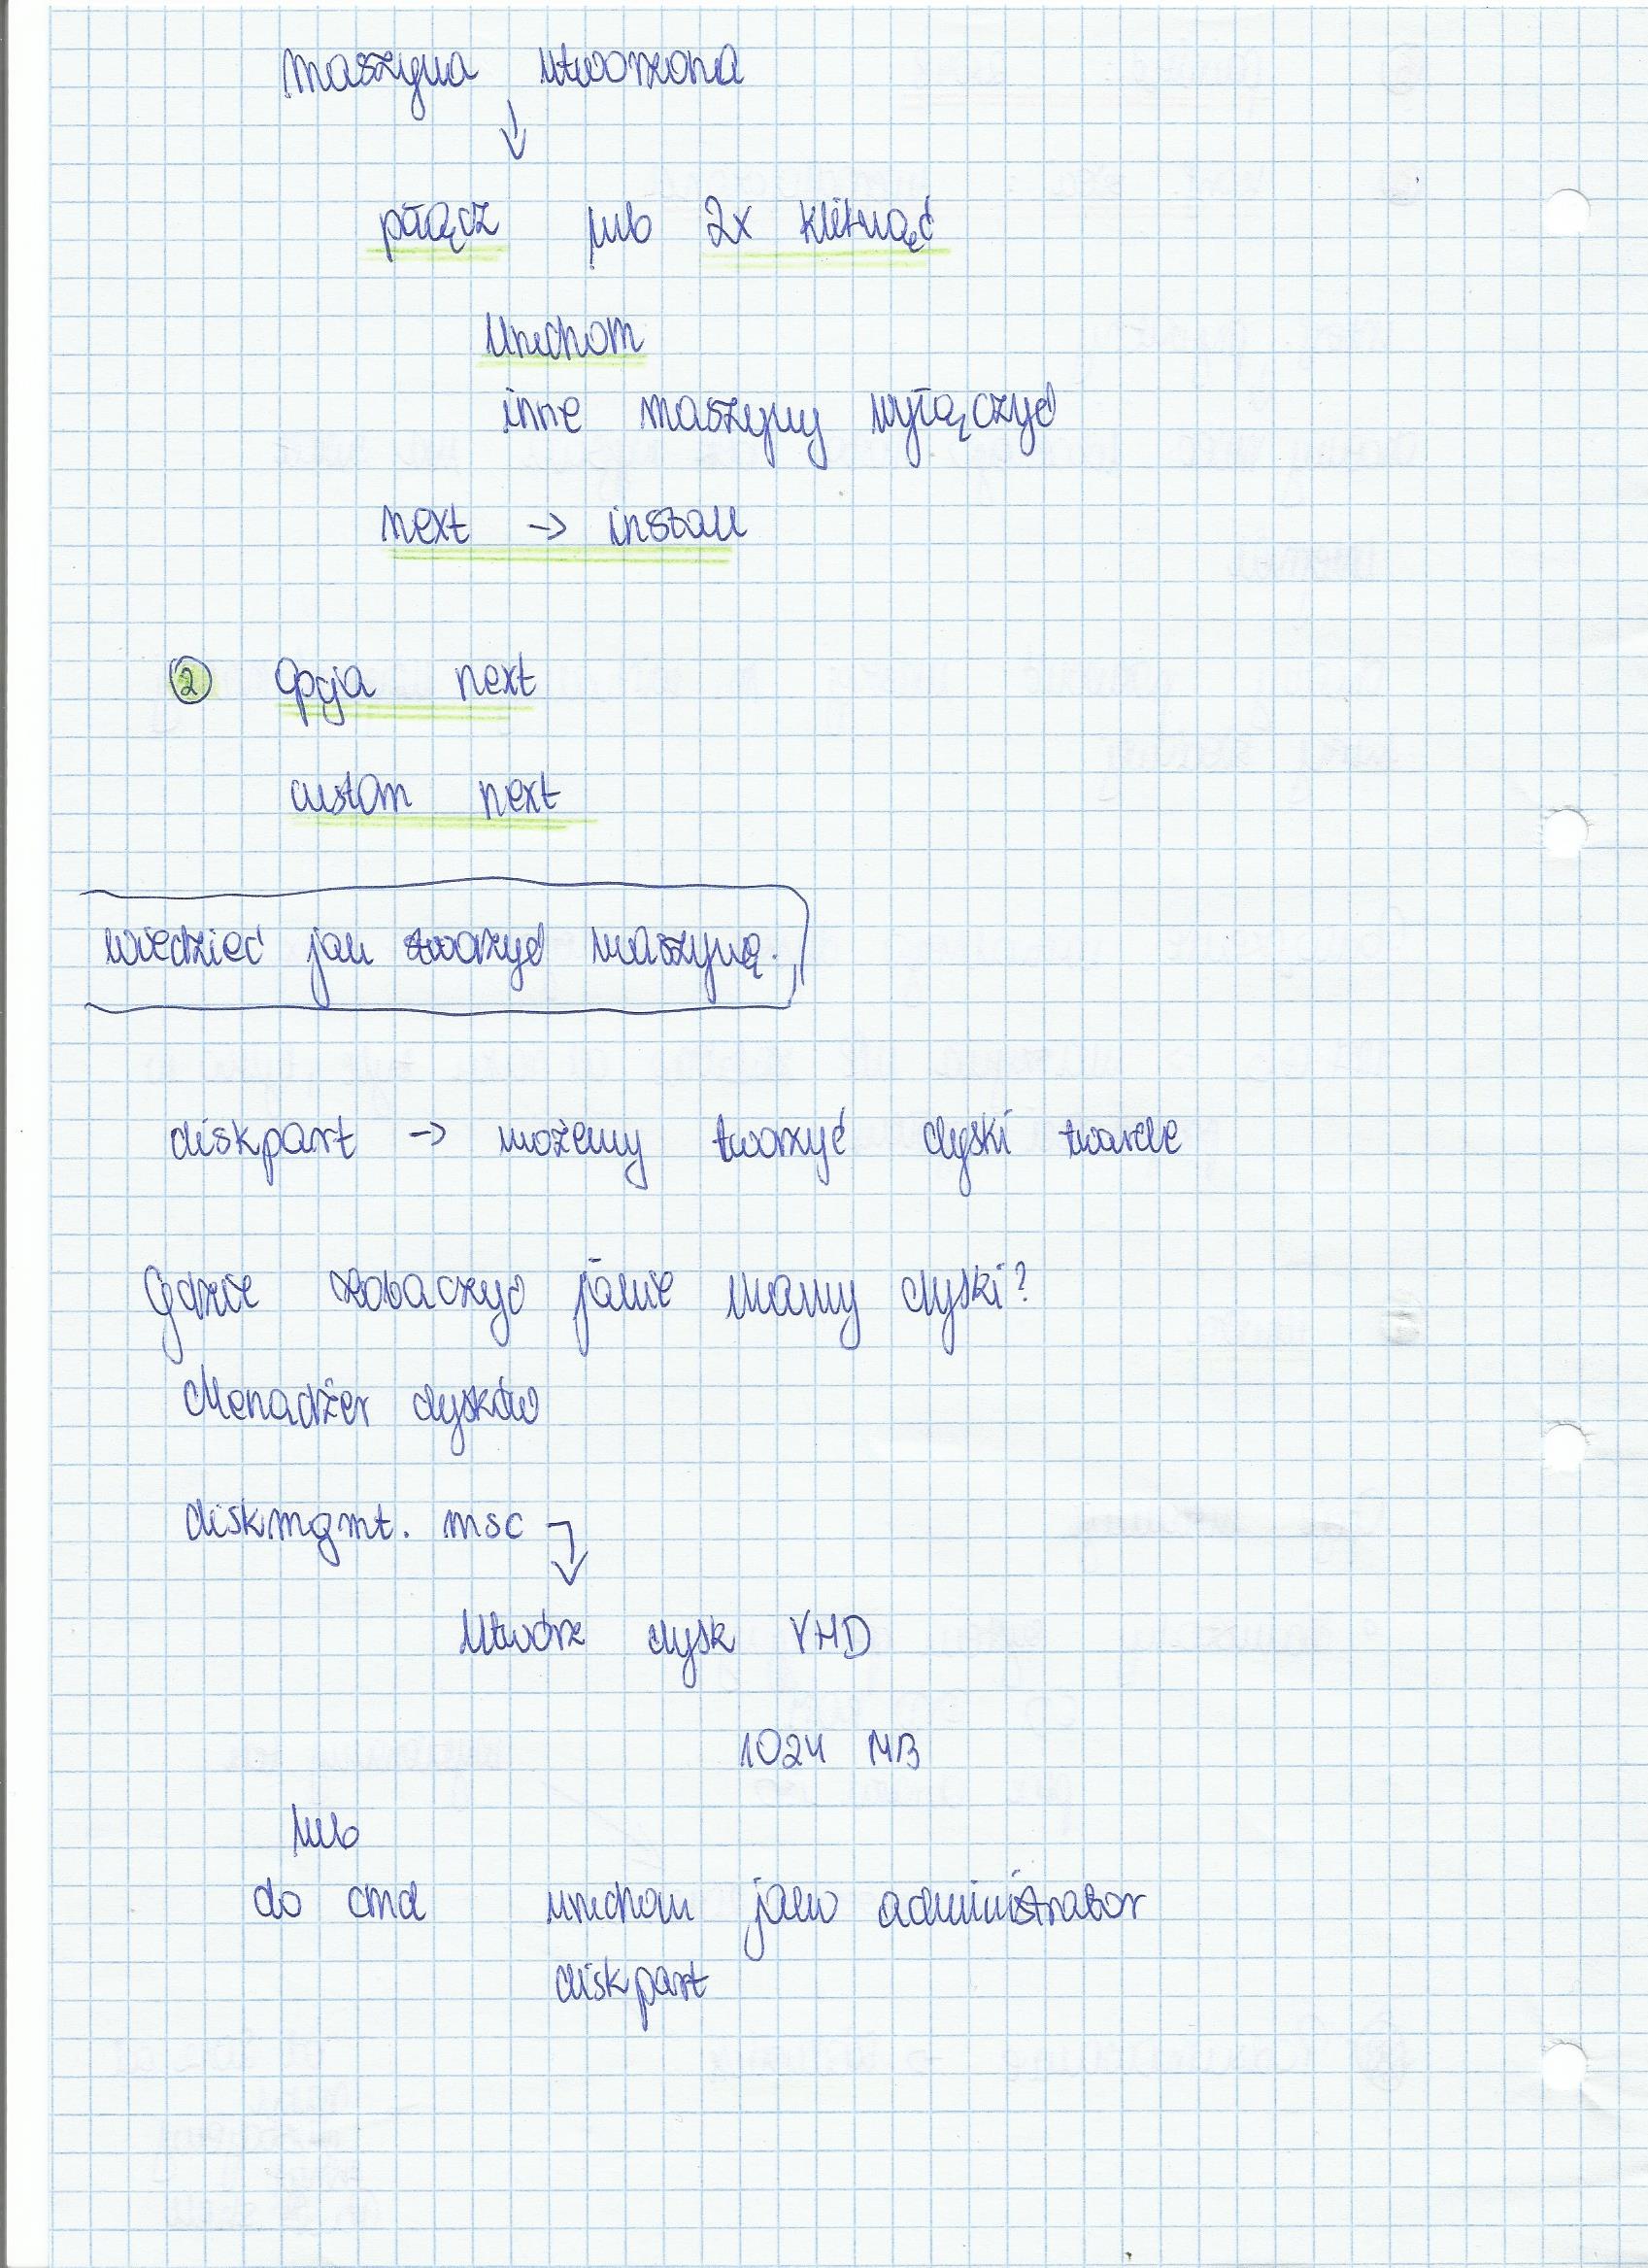 maszyna utworzona
↓
połącz lub 2x kliknąć
Uruchom
inne maszyny wyłączyć
next → install
② Opcja next
custom next
wiedzieć jak tworzyć maszynę.
diskpart → możemy tworzyć dyski twarde
Gdzie zobaczyć jakie mamy dyski?
Menadżer dysków
diskmgmt. msc
↓
Utwórz dysk VHD
1024 MB
lub
do cmd uruchom jako administrator
diskpart